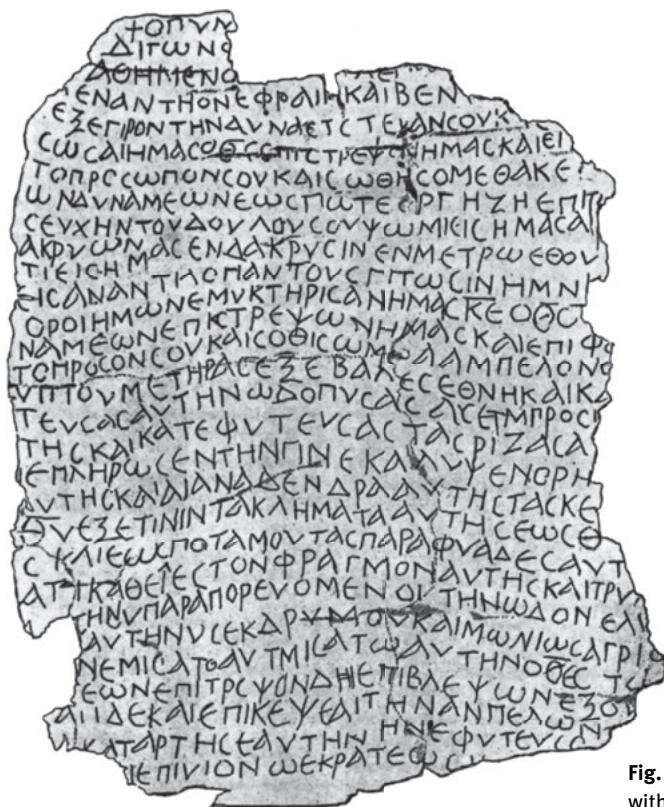 +ΟΠΥΝ
ΔΙΓΩΝΟ
ΑΘΗΜΕΝΟ
ΙΕΝΑΝΤΗΟΝΕΦΡΑΙΜΚΑΙΒΕΝ
ΕΞΕΓΙΡΟΝΤΗΝΔΥΝΑΕΤCΤΕΚΑΝCΟΥΚ
CΩCΑΙΗΜΑCΟΘCCΠΙCΤΡΕΨΟΝΗΜΑCΚΑΙΕΙ
ΤΟΠΡCCΩΠΟΝCΟΥΚΑΙCΩΘΗCΟΜΕΘΑΚΕ
ΩΝΔΥΝΑΜΕΩΝΕΩCΠΩΤΕΟΡΓΗΖΗΕΠΠ
CΕΥΧΗΝΤΟΥΔΟΥΛΟΥCΟΥΨΩΜΙΕΙCΗΜΑCΑ
ΑΚΡΥΩΝΑCΕΝΔΑΚΡΥCΙΝΕΝΜΕΤΡΩΕΘΟΥ
ΤΙΕΙCΗΜ
ΗCΑΝΑΝΤΗΛΟΠΑΝΤΟΥCΓΙΤΩCΙΝΗΜΝΙ
ΟΡΟΙΗΜΩΝΕΜΥΚΤΗΡΙCΑΝΗΜΑCΚΕΟΘC
ΝΑΜΕΩΝΕΠΚΤΡΕΨΩΝΗΜΑCΚΑΙΕΠΙΦ
ΤΟΠΡΟCΟΝCΟΥΚΑΙCΟΘΙCΩΜΕΘΑΑΜΠΕΛΟΝ
ΥΠΤΟΥΜΕΤΗΡΑCΕΞΕΒΑΛΕCΕΘΝΗΚΑΙΚΑ
ΤΕΥCΑCΑΥΤΗΝΩΔΟΠΥCΑCΑCΕΤΜΠΡΟC
ΤΗCΚΑΙΚΑΤΕΨΥΤΕΥCΑCΤΑCΡΙΖΑCΑ
ΙΕΠΛΗΡΩCΕΝΤΗΝΓΙΝΕΚΑΛΥΨΕΝΟΡΗ
ΑΥΤΗCΚΑΙΑΙΑΝΑΔΕΝΔΡΑΑΥΤΗCΤΑCΚΕ
ΘΥΕΞΕΤΙΝΙΝΤΑΚΛΗΜΑΤΑΑΥΤΗCΕΩCΘ
CΚΑΙΕΩCΠΟΤΑΜΟΥΤΑCΠΑΡΑΦΥΑΔΕCΑΥΤ
ΑΤΙΚΑΘΕΙΕCΤΟΝΦΡΑΓΜΟΝΑΥΤΗCΚΑΙΤΡΥ
ΤΗΝΥΠΑΡΑΠΟΡΕΥΟΜΕΝΟΙΤΗΝΩΔΟΝΕΛΙ
ΑΥΤΗΝΥCΕΚΔΡΥΜΟΥΚΑΙΜΩΝΙΩCΑΓΡΙ
ΝΕΜΙCΑΤΟΑΥΤΜΙCΑΤΩΑΥΤΗΝΟΘΕCΤΩ
ΕΩΝΕΠΙΤΡCΨΟΝΔΗΕΠΙΒΛΕΨΩΝΕΞΟΥ
ΑΙΙΔΕΚΑΙΕΠΙΚΕΨΕΑΙΤΗΝΑΝΠΕΛΩ
ΚΑΤΑΡΤΗCΕΑΥΤΗΝΗΝΕΦΥΤΕΥCΕΝ
ΙΕΠΙΥΙΟΝΩΕΚΡΑΤΕΩ
Fig.
with